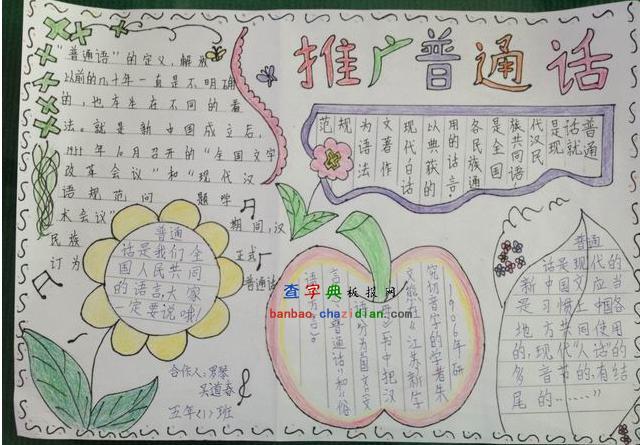 推广普通话
"普通语"的定义,解放
以前的几十年一直是不明确
的,也存在不同的看
法。就是新中国成立后,
1955年10月召开的"全国文字
改革会议"和"现代汉
语规范问题学
术会议"期间,汉
民族
正式
订为
普通话
普通
话就是现
代汉民
族共同语
是全国
各民族通
用的话言
以典获的
现代白话
文著作
为语法
规
范
普通
话是我们全
国人民共同
的语言,大家
一定要说哦!
1906年研
究切音字的学者朱
文熊《江苏新字
》书中把汉
普通话"和"俗
普通
话是现代的
新中国文应当
是习惯上中国各
地方共同使用
的,现代"人话"的
多音节的,有结
尾的……"
合作人:罗琴
吴道春
五年(1)班
查字典板报网
banbao.chazidian.com